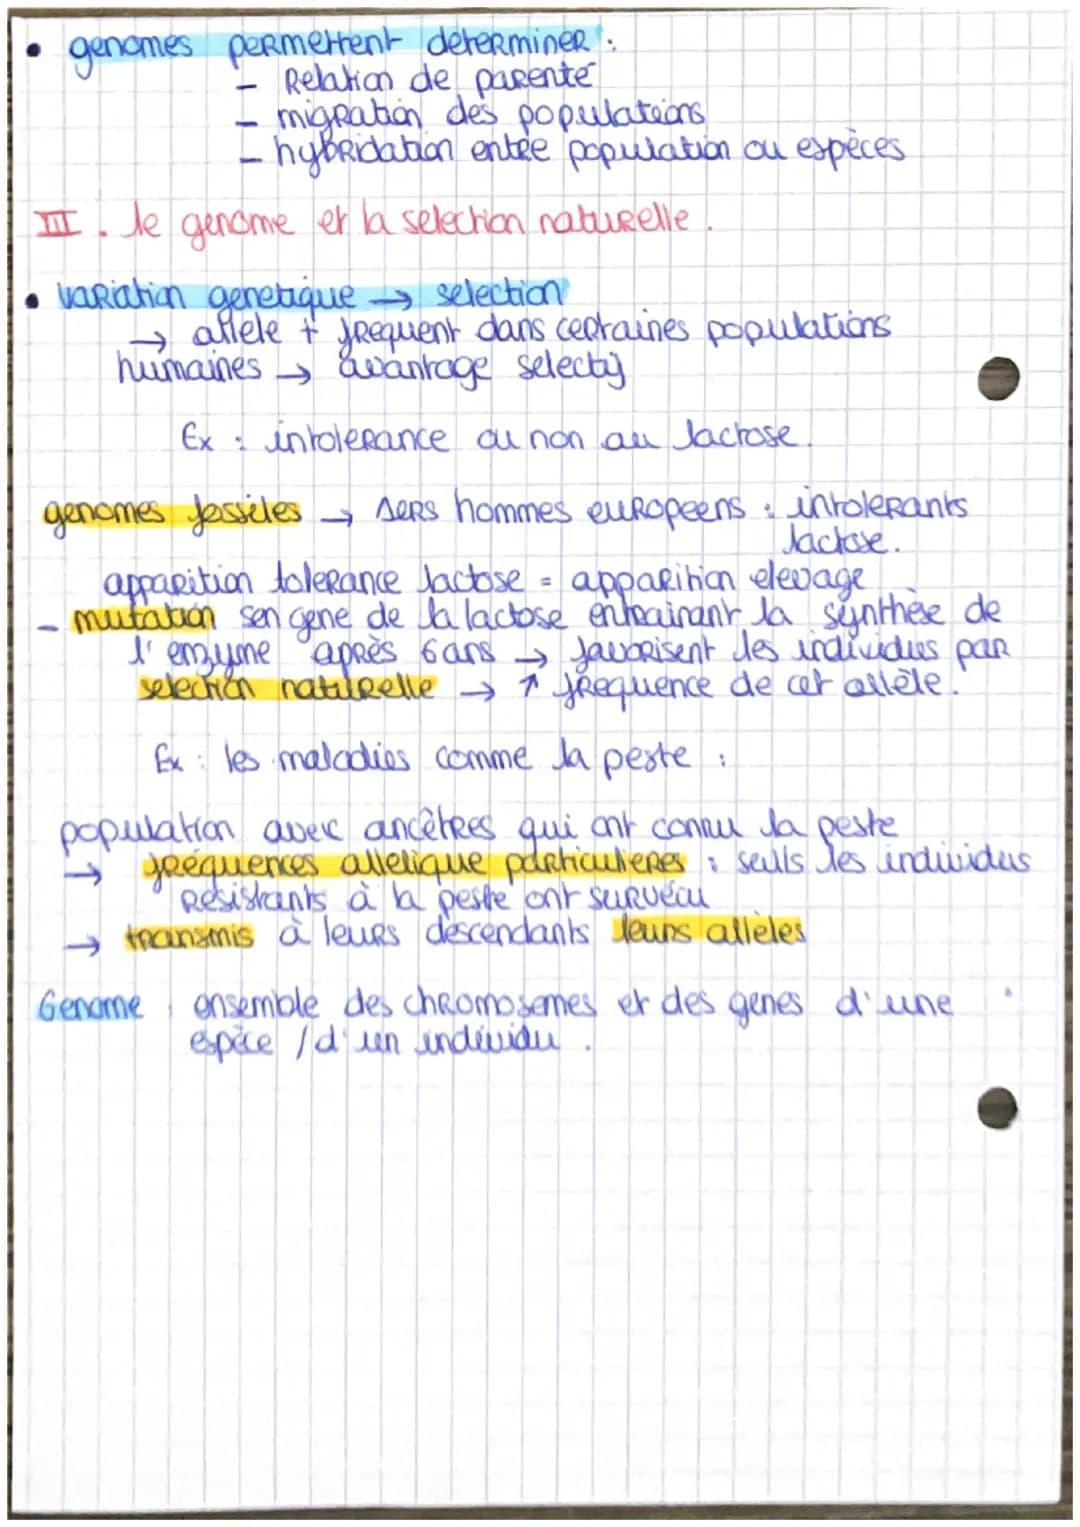 • genomes permettent determiner :
- Relation de parenté
- migration des populations
- hybridation entre population ou espèces
III. le genome et la selection naturelle.
• variation genetique → selection
→ allele + frequent dans certaines populations
humaines → avantage selectif
Ex : intolerance ou non au lactose.
genomes fossiles → 1ers hommes europeens : intolerants
lactose.
apparition tolerance lactose = apparition elevage
- mutation sen gene de la lactose entrainant la synthèse de
l'enzyme après 6 ans → favorisent les individus par
selection naturelle → ↑ frequence de cet allèle.
Ex : les maladies comme la peste :
population avec ancêtres qui ont connu la peste
→ fréquences allelique particulieres : seuls les individus
resistants à la peste ont survécu
→ transmis à leurs descendants leurs allèles
Genome : ensemble des chromosomes et des genes d'une
espèce / d'un individu.